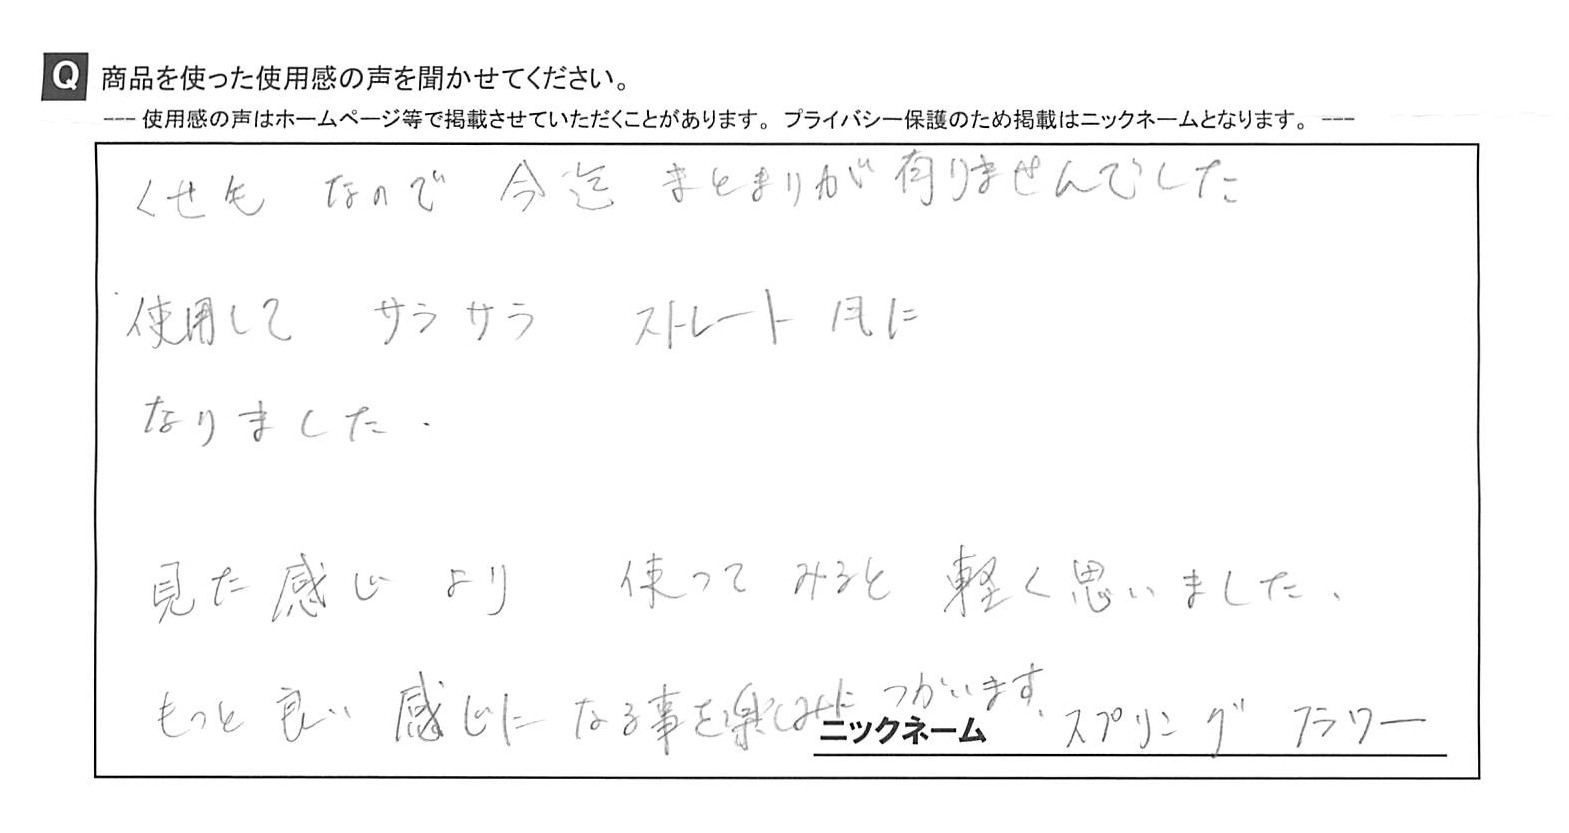 Q 商品を使った使用感の声を聞かせてください。
--- 使用感の声はホームページ等で掲載させていただくことがあります。 プライバシー保護のため掲載はニックネームとなります。 ---
くせ毛 なので 今迄 まとまりが 有りませんでした
使用して サラサラ ストレート 風に
なりました.
見た感じ より 使って みると 軽く思いました、
もっと 良い 感じに なる事を楽しみに つかいます、
ニックネーム スプリング フラワー